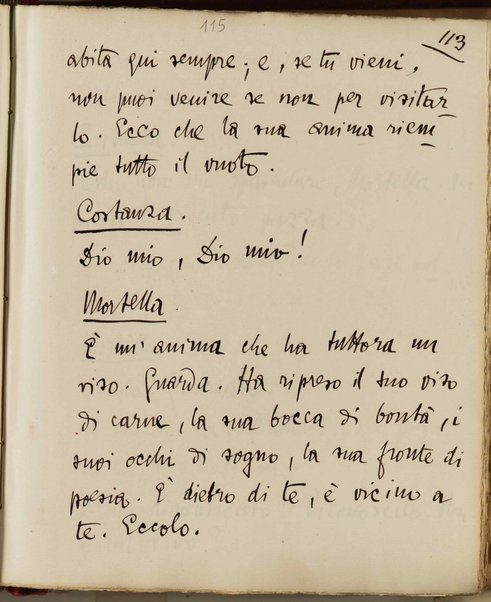 115
113
abita qui sempre; e, se tu vieni,
non puoi venire se non per visitar-
lo. Ecco che la sua anima riem-
pie tutto il vuoto.
Costanza.
Dio mio, Dio mio!
Mortella.
È un'anima che ha tuttora un
viso. Guarda. Ha ripreso il suo viso
di carne, la sua bocca di bontà, i
suoi occhi di sogno, la sua fronte di
poesia. È dietro di te, è vicino a
te. Eccolo.